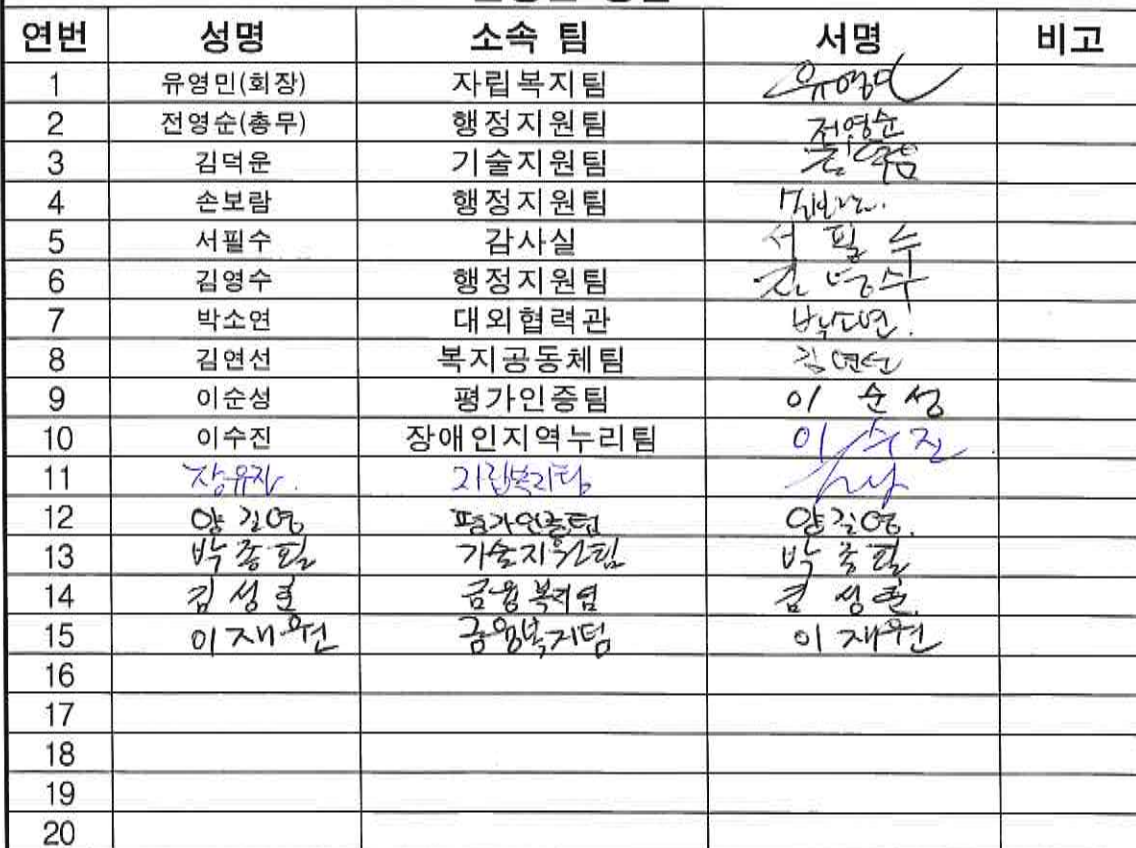 연번 성명 소속 팀 서명 비고
1 유영민(회장) 자립복지팀 유영민
2 전영순(총무) 행정지원팀 전영순
3 김덕운 기술지원팀
4 손보람 행정지원팀
5 서필수 감사실 서필수
6 김영수 행정지원팀 김영수
7 박소연 대외협력관 박소연.
8 김연선 복지공동체팀 김연선
9 이순성 평가인증팀 이순성
10 이수진 장애인지역누리팀 이수진.
11 장유진. 자립복지팀
12 양길영 평가인증팀 양길영.
13 박종필 기술지원팀 박종필
14 김성훈 금융복지팀 김성훈.
15 이재원 금융복지팀 이재원
16
17
18
19
20